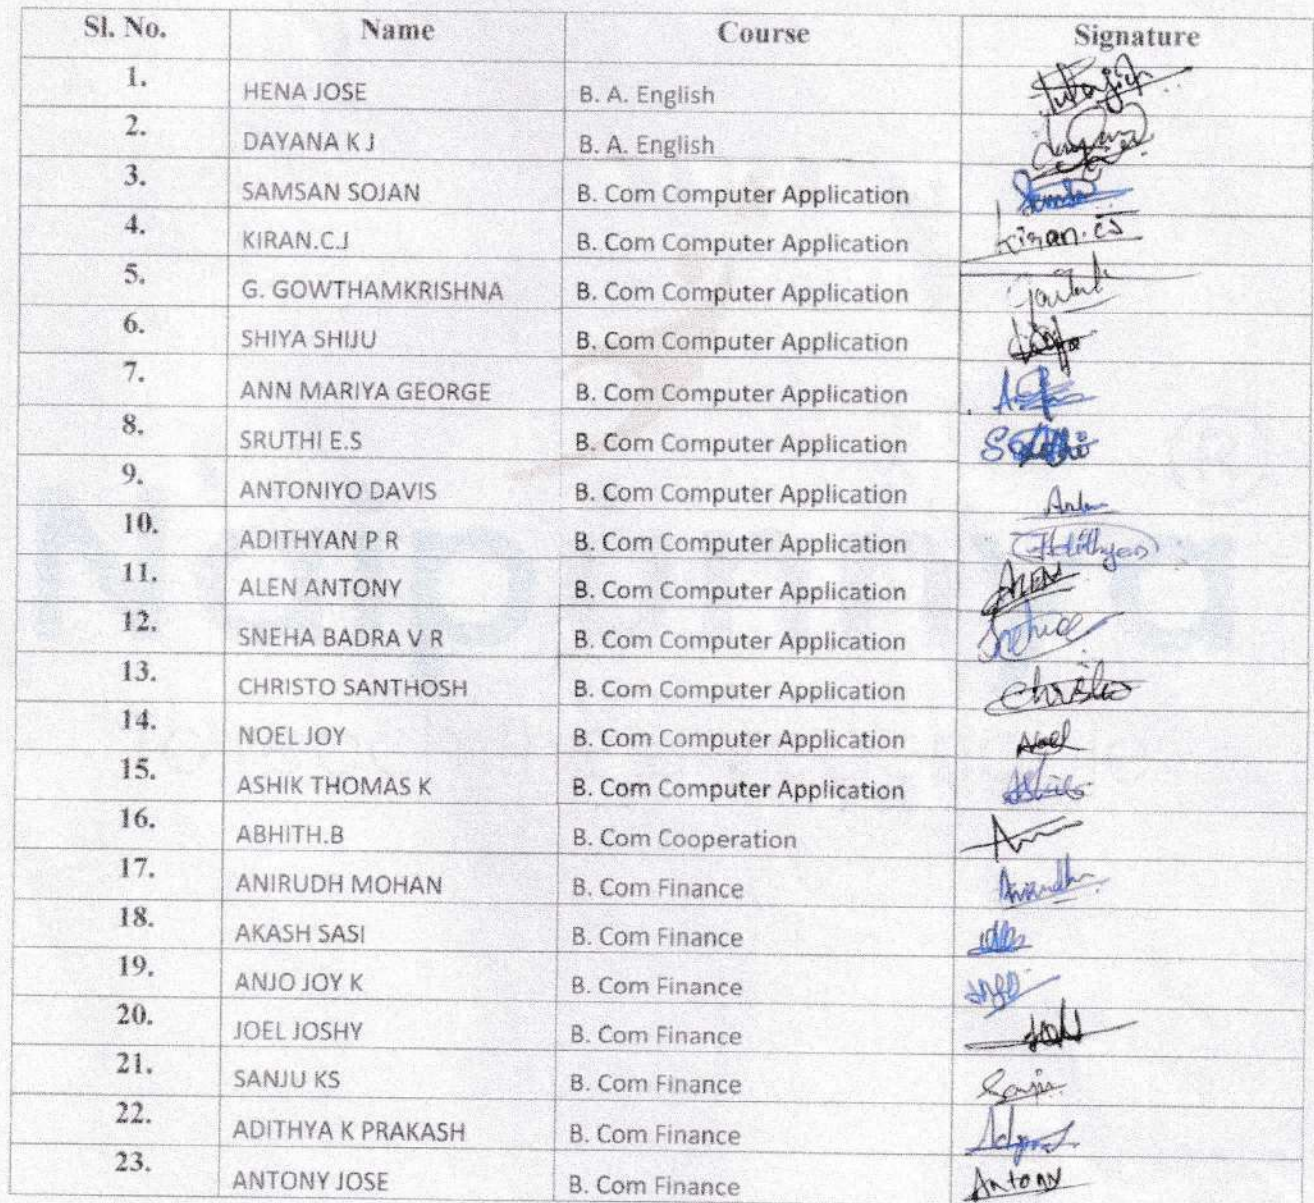 Sl. No. Name Course Signature
1. HENA JOSE B. A. English
2. DAYANA K J B. A. English
3. SAMSAN SOJAN B. Com Computer Application
4. KIRAN.C.J B. Com Computer Application Kiran.cJ
5. G. GOWTHAMKRISHNA B. Com Computer Application
6. SHIYA SHIJU B. Com Computer Application
7. ANN MARIYA GEORGE B. Com Computer Application
8. SRUTHI E.S B. Com Computer Application
9. ANTONIYO DAVIS B. Com Computer Application
10. ADITHYAN P R B. Com Computer Application Adithyan
11. ALEN ANTONY B. Com Computer Application ALEN
12. SNEHA BADRA V R B. Com Computer Application
13. CHRISTO SANTHOSH B. Com Computer Application Christo
14. NOEL JOY B. Com Computer Application Noel
15. ASHIK THOMAS K B. Com Computer Application
16. ABHITH.B B. Com Cooperation
17. ANIRUDH MOHAN B. Com Finance
18. AKASH SASI B. Com Finance
19. ANJO JOY K B. Com Finance
20. JOEL JOSHY B. Com Finance
21. SANJU KS B. Com Finance Sanju
22. ADITHYA K PRAKASH B. Com Finance
23. ANTONY JOSE B. Com Finance Antony